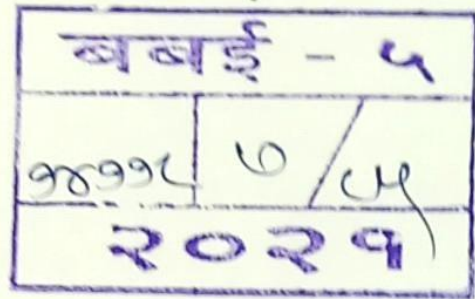 बबई - ५
१४११८ ७ /
२०२१